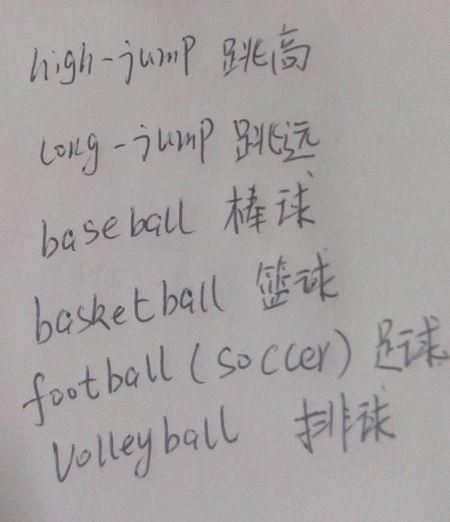 high-jump 跳高
long-jump 跳远
baseball 棒球
basketball 篮球
football (soccer) 足球
Volleyball 排球